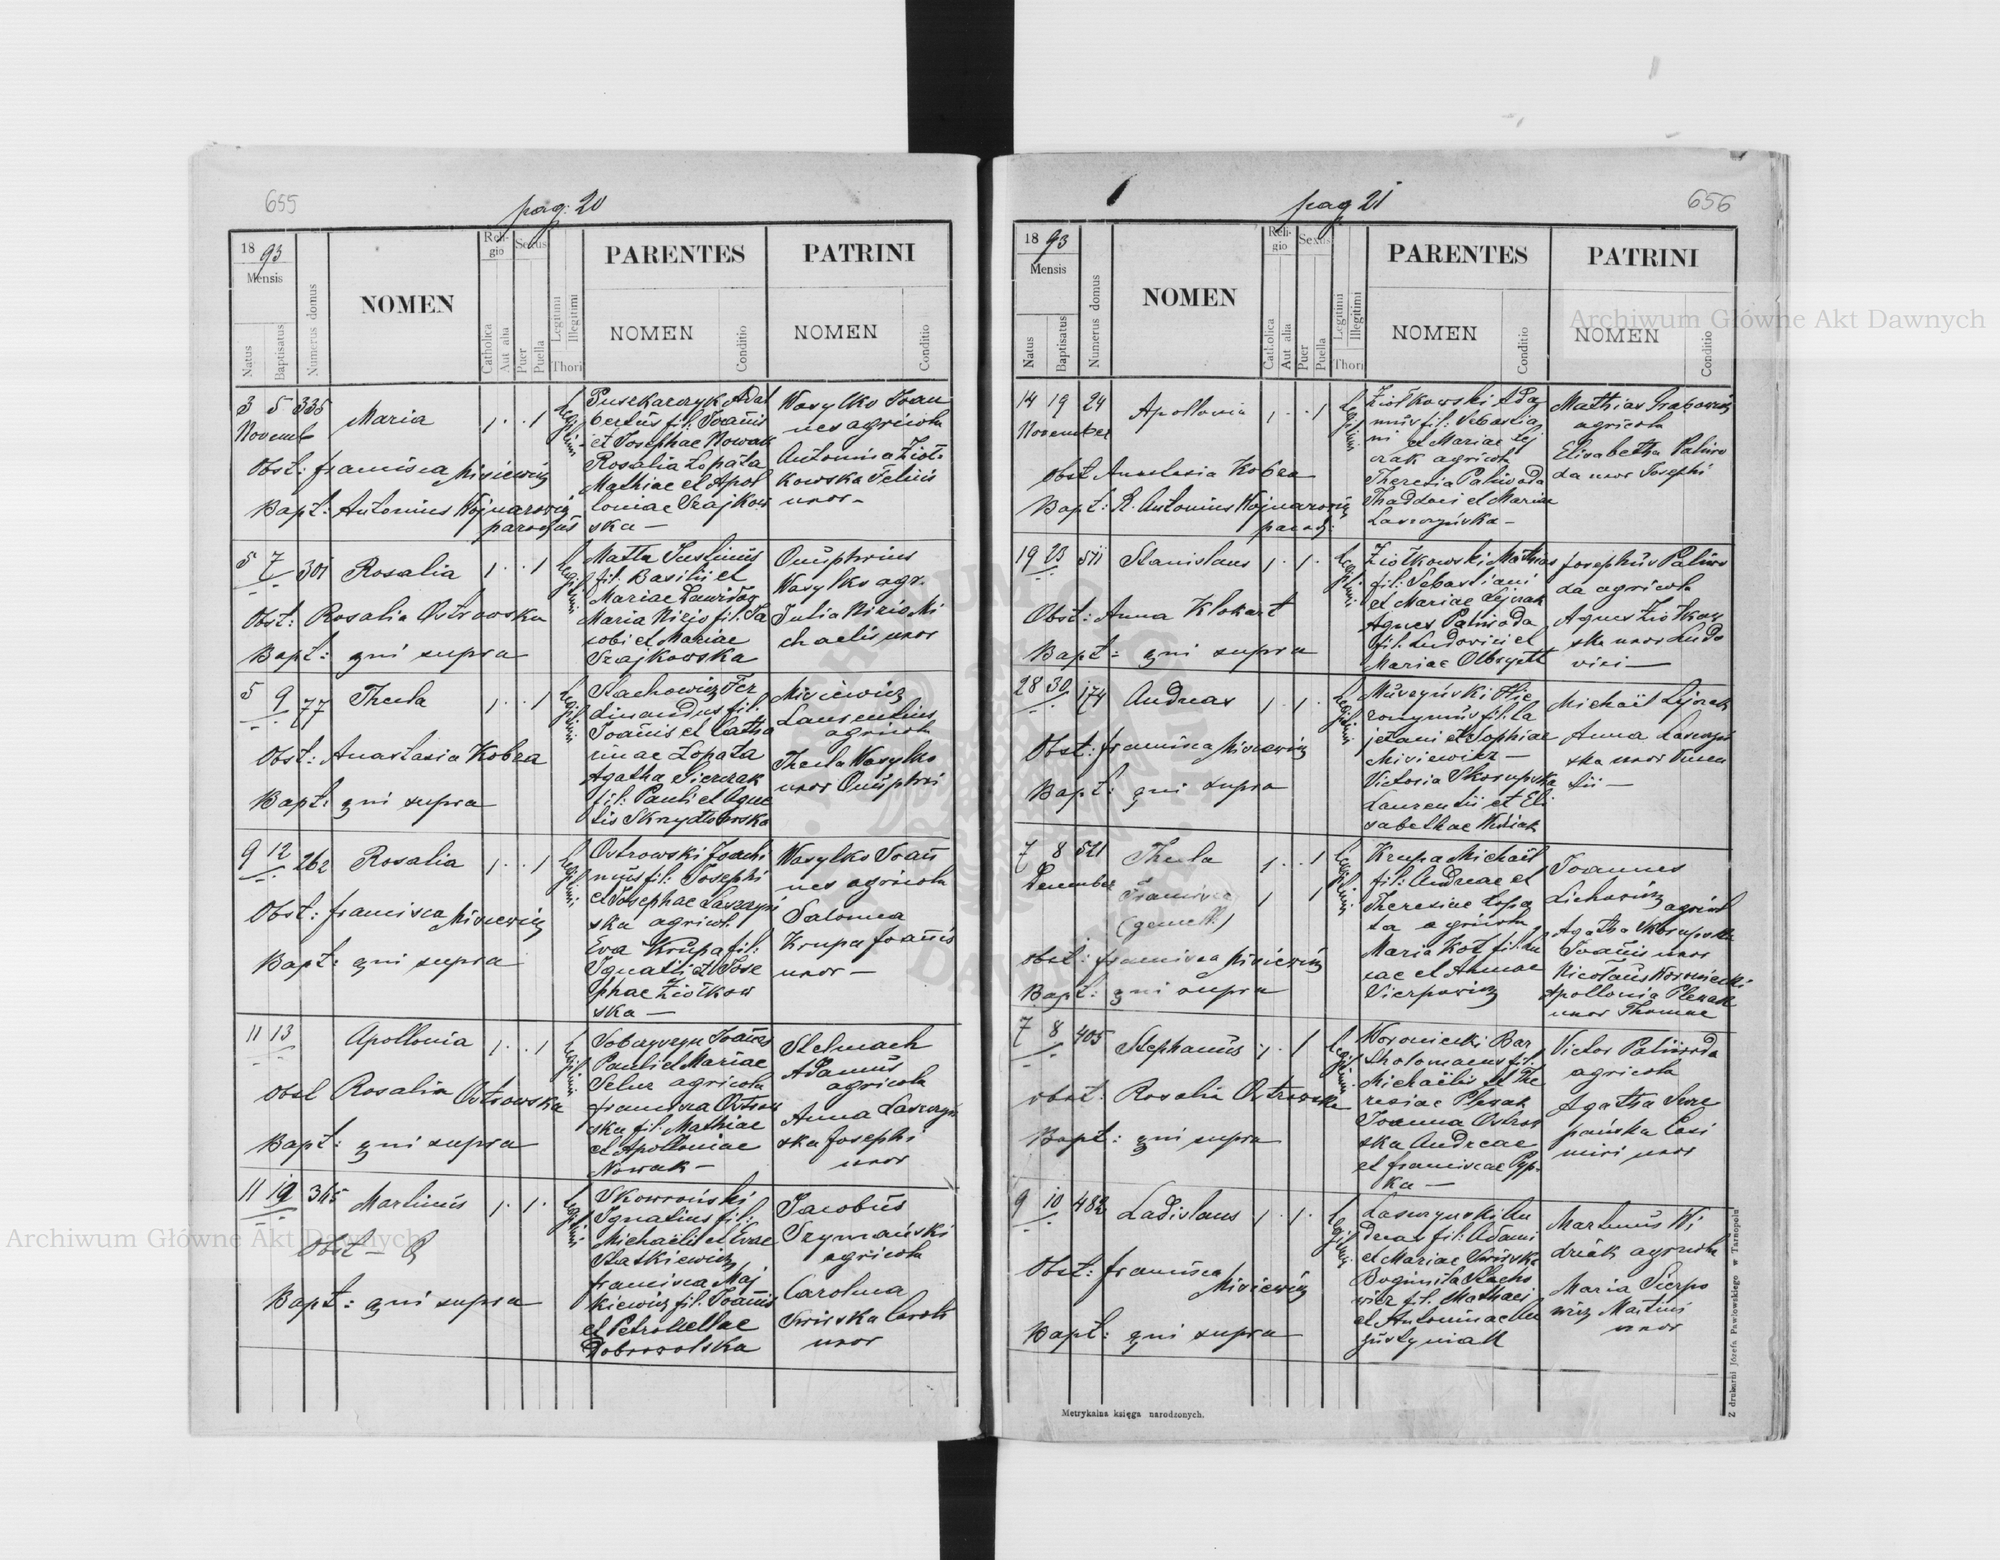 655
pag: 20
1893
Mensis
Natus
Baptisatus
Numerus domus
NOMEN
Religio
Catholica
Aut alia
Sexus
Puer
Puella
Legitimi
Illegitimi
Thori
PARENTES
NOMEN
Conditio
PATRINI
NOMEN
Conditio
3 5 335
Novemb
Maria
1 . . 1
Obst: Francisca Misiewicz
Bapt: Antonius Wojnarowicz
parochus
Puszkarczyk Adal
bertus fil: Joannis
et Josephae Nowak
Rosalia Łopata
Mathiae et Apol
loniae Szajkow
ska —
Wasylko Joan
nes agricola
Antonina Ziół
kowska
uxor —
5 7 301
Rosalia
1 . . 1
Obst: Rosalia Ostrowska
Bapt: qui supra
Matta Justinus
fil: Basilii et
Mariae
Maria Nizio fil: Ja
cobi et Mariae
Szajkowska
Onuphrius
Wasylko agr.
Julia Nizio Mi
chaelis uxor
5 9 77
Thecla
1 . . 1
Obst: Anastasia Kobza
Bapt: qui supra
Stachowicz Fer
dinandus fil:
Joannis et Catha
rinae Łopata
Agatha Sierczak
fil: Pauli et Agne
tis
Misiewicz
Laurentius
agricola
Thecla Wasylko
uxor Onuphri
9 12 262
Rosalia
1 . . 1
Obst: Francisca Misiewicz
Bapt: qui supra
Ostrowski Joachi
mus fil: Josephi
et Josephae Laszczyń
ska agricol.
Eva Krupa fil:
Ignatii et Jose
phae Ziółkow
ska —
Wasylko Joan
nes agricola
Salomea
Krupa Joannis
uxor —
11 13
Apollonia
1 . . 1
Obst Rosalia Ostrowska
Bapt: qui supra
Joannes
Pauli et Mariae
agricola
Francisca Ostrow
ska fil: Mathiae
et Apolloniae
Nowak —
Stelmach
Adamus
agricola
Anna Laszczyń
ska Josephi
uxor
11 19 345
Martinus
1 . 1 .
Obst —
Bapt: qui supra
Skowroński
Ignatius fil:
Michaelis et Evae
Statkiewicz
Francisca Maj
kiewicz fil: Joannis
et Petronellae
Dobrowolska
Jacobus
Szymański
agricola
Carolina
Swirska Caroli
uxor
pag 21
656
1893
Mensis
Natus
Baptisatus
Numerus domus
NOMEN
Religio
Catholica
Aut alia
Sexus
Puer
Puella
Legitimi
Illegitimi
Thori
PARENTES
NOMEN
Conditio
PATRINI
NOMEN
Conditio
14 19 24
November
Apollonia
1 . . 1
Obst Anastasia Kobza
Bapt: R. Antonius Wojnarowicz
paroch:
Ziółkowski Ada
mus fil: Sebastia
ni et Mariae Lej
czak agricola
Theresia Paliwoda
Thaddaei et Mariae
Laszczyńska —
Mathias Grabowicz
agricola
Elisabetha Paliwo
da uxor Josephi
19 23 511
Stanislaus
1 . 1 .
Obst: Anna Klokart
Bapt: qui supra
Ziółkowski Mathias
fil: Sebastiani
et Mariae Lejczak
Agnes Paliwoda
fil: Ludovici et
Mariae Olbrycht
Josephus Paliwo
da agricola
Agnes Ziółkow
ska uxor Ludo
vici —
28 30 174
Andreas
1 . 1 .
Obst: Francisca Misiewicz
Bapt: qui supra
Muszyński Hie
ronymus fil: Ca
jetani et Sophiae
Misiewicz —
Victoria Skorupska
Laurentii et Eli
sabethae Woźiak
Michaël Lejczak
Anna Laszczyń
ska uxor Vincen
tii —
7 8 521
December
Thecla
1 . . 1
Francisca
1 1
(gemell.)
obst: Francisca Misiewicz
Bapt: qui supra
Krupa Michaël
fil: Andreae et
Theresiae Łopa
ta agricola
Maria Kot fil: Lu
cae et Annae
Sierpowicz
Joannes
Lichowicz agricol
Agatha Skorupska
Joannis uxor
Nicolaus Woroniecki
Apollonia Plezak
uxor Thomae
7 8 405
Stephanus
1 . 1
obst: Rosalia Ostrowska
Bapt: qui supra
Woroniecki Bar
tholomaeus fil:
Michaëlis et The
resiae Plezak
Joanna Ostrow
ska Andreae
et Franciscae Pyp
ka —
Victor Paliwoda
agricola
Agatha Szcze
pańska Casi
miri uxor
9 10 482
Ladislaus
1 . 1 .
Obst: Francisca
Misiewicz
Bapt: qui supra
Laszczyński An
dreas fil: Adami
et Mariae Swirska
Bogumiła Stacho
wicz fil. Mathaei
et Antoninae Au
gustyniak
Martinus Wi
drak agricola
Maria Sierpo
wicz Martini
uxor
Metrykalna księga narodzonych.
Z drukarni Józefa Pawłowskiego w Tarnopolu
Archiwum Główne Akt Dawnych
Archiwum Główne Akt Dawnych